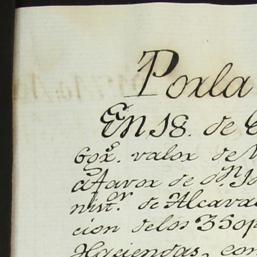 Por la
En 18. de
60x. valor de
a favor de dn. Jo
nistor. de Alcava
cion delos 360p
Haciendas, con